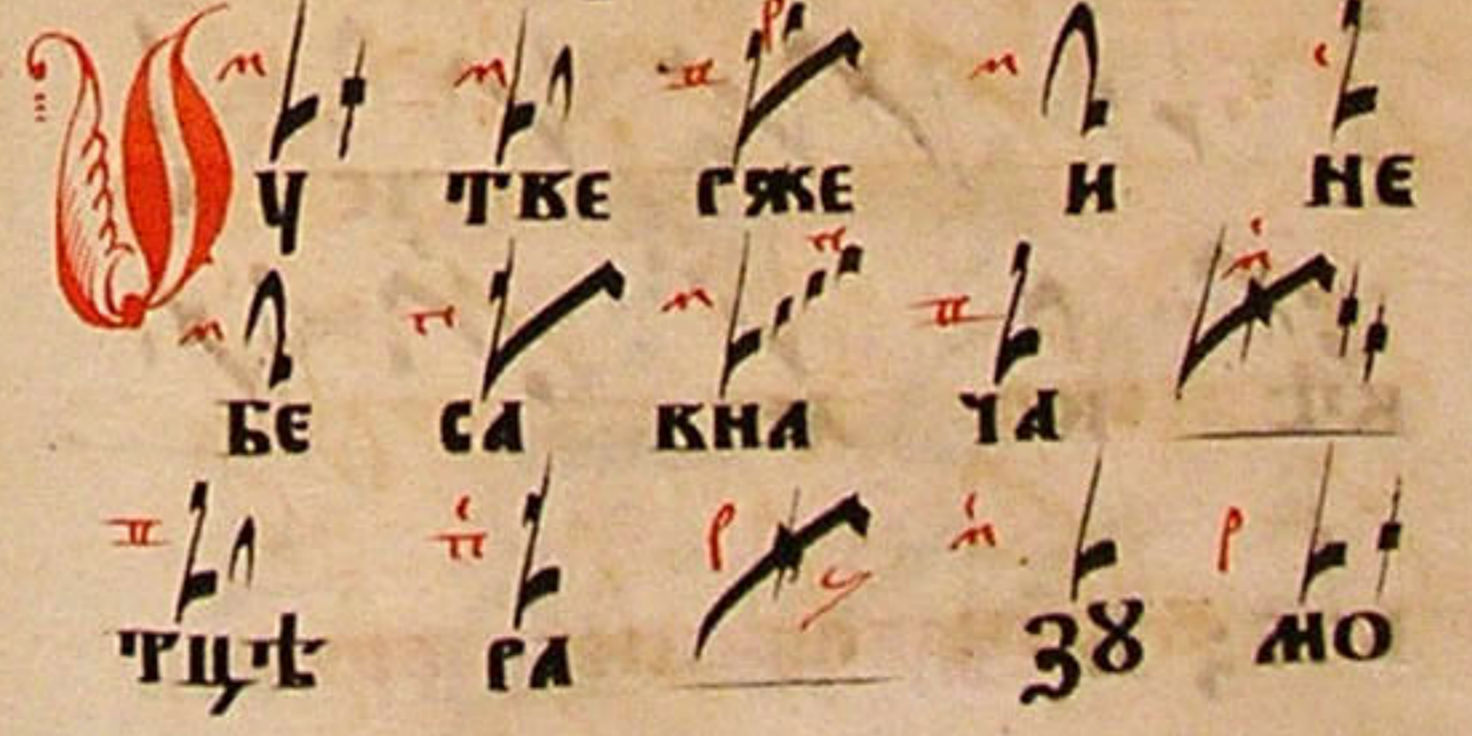 Оу тве рже и не
бе са вна ча
тцѣ ра зꙋ мо